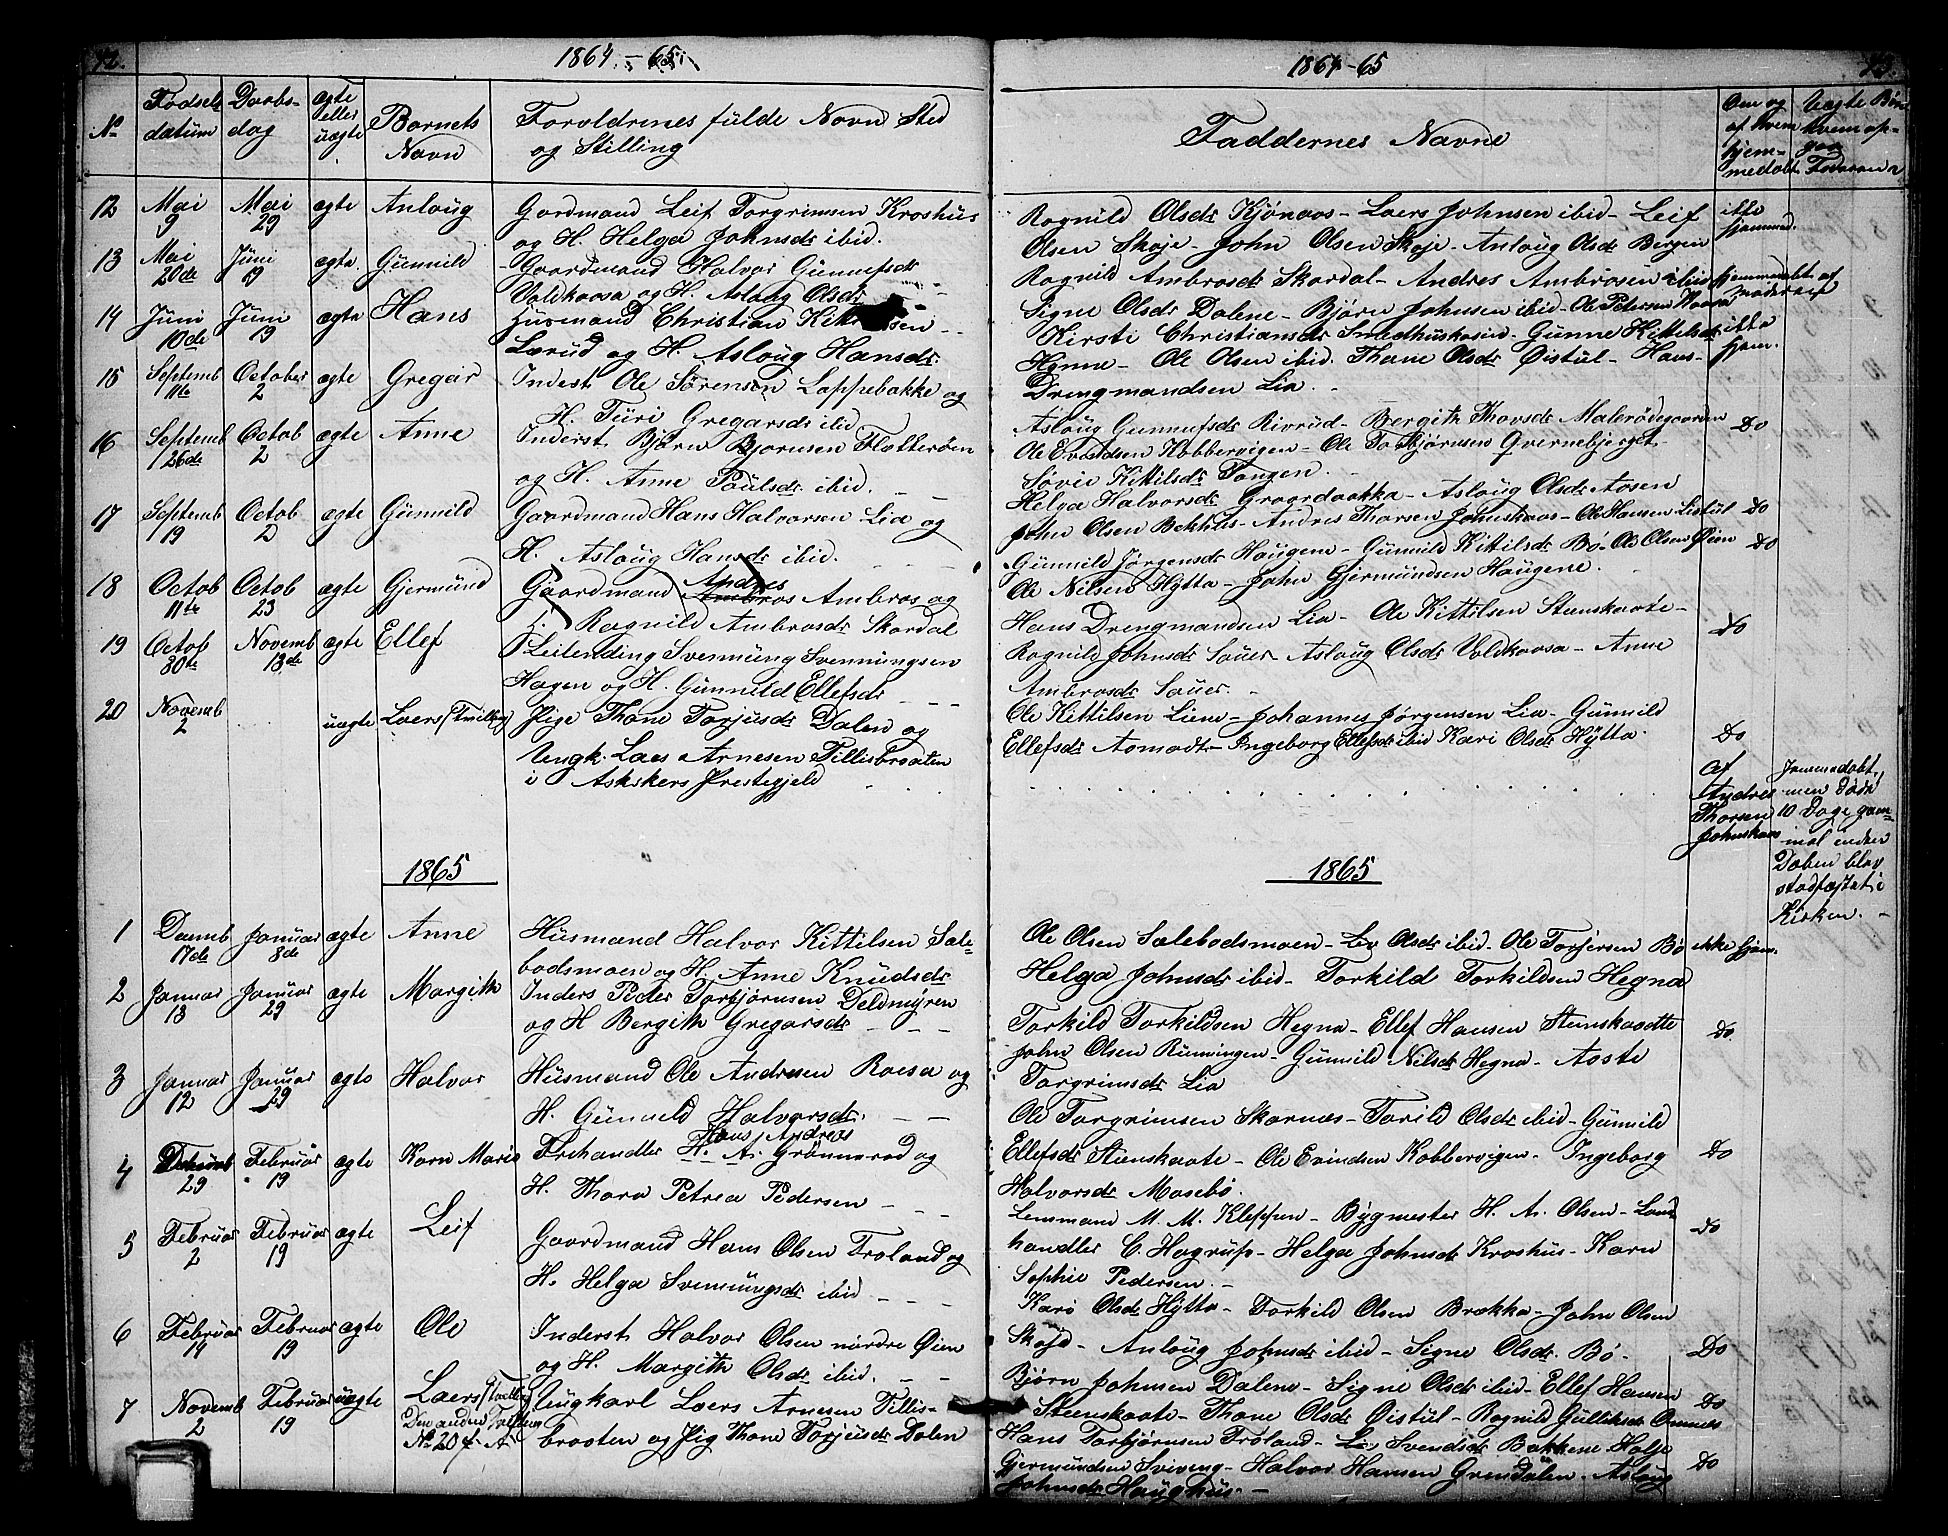 42.
1864-65
No
Fødsels datum
Daabs- dag
ægte eller uægte
Barnets Navn
Forældrenes fulde Navn Sted og Stilling
12 Mai 9 Mai 29 ægte Anlaug Gordmand Leif Torgrimsen Kroshus
og H. Helga Johnsdr ibid.
13 Mai 20de Juni 19 ægte Gunnild Gaardmand Halvor Gunnufsdr
Voldkaasa og H. Aslaug Olsdr
14 Juni 10de Juni 19 ægte Hans Husmand Christian
Lærud og H. Aslaug Hansdr
15 Septemb 11te October 2 ægte Gregar Inderst Ole Sørensen Lappebakke og
H. Turi Gregarsdr ibid
16 Septemb 26de Octob 2 ægte Anne Inderst Bjørn Bjornsen Flatterøen
og H. Anne Paulsdr ibid.
17 Septemb 19 Octob 2 ægte Gunnild Gaardmand Hans Halvorsen Lia og
H. Aslaug Hansdr ibid.
18 Octob 11te Octob 23 ægte Gjermund Gaardmand Andres Ambros Ambros og
H. Ragnild Ambrosdr Skordal
19 Octob 30te Novemb 13de ægte Ellef Leilending Svennung Svennungsen
Hagen og H. Gunnild Ellefsdr
20 Novemb 2 uægte Laers (Tvilling) Pige Thone Torjusdr Dalen og
Ungk. Laes Arnesen Tillisbraaten
i Askskers Prestegjeld
1865
1 Decmb 17de Januar 8de ægte Anne Husmand Halvor Kittilsen Sale-
bodsmoen og H. Anne Knudsdr
2 Januar 13 Januar 29 ægte Margith Inders Peder Torbjørnsen Deldmyren
og H Bergith Gregarsdr
3 Januar 12 Januar 29 ægte Halvor Husmand Ole Andresen Raesa og
H. Gunnild Halvorsdr
4 29 Februar 19 ægte Karn Marie Hans Andreas
H. A. Grønnerod og
H. Thora Petrea Pedersen
5 Februar 2 Februar 19 ægte Leif Gaardmand Hans Olsen Froland og
H. Helga Svennungsdr ibid
6 Februar 14 Februar 19 ægte Ole Inderst Halvor Olsen nordre Øien
og H. Margith Olsdr ibid.
7 Novemb 2 Februar 19 uægte Laers (Tvilling) Den anden Tvilling No 20 f. A. Ungkarl Laers Arnesen Tillis-
braaten og Pig Thone Torjusdr Dalen
1864-65
43.
Faddernes Navne
Om og af hvem hjem- medøbt
Uægte Børn hvem op- gaa Faderen
Ragnild Olsdr Kjønaas - Laers Johnsen ibid - Leif
Olsen Skoje - John Olsen Skoje - Anlaug Olsdr Bergen
ikke hjemmed.
Ragnild Ambrosdr Skordal - Andres Ambrosen ibid
Signe Olsdr Dalene - Bjørn Johnsen ibid - Ole Petersen
hjemmedøbt af moderen
Kirsti Christiansdr Smedhuskasin - Gunne Kittilsdr
Hynne - Ole Olsen ibid. Thone Olsdr Øistul - Hans
Drengmandsen Lia.
ikke hjem.
Aslaug Gunnufsdr Rivrud - Bergith Thorsdr
Ole Evindsen Kobbervigen - Ole Torbjørnsen Qvernebjerget
Søvie Kittilsdr Tangen.
Do
Helga Halvorsdr - Aslaug Olsdr Aasen
John Olsen Bekhus - Andres Thorsen Johnskaas - Ole Hansen Listul
Do
Gunnild Jørgensdr Haugene - Gunnild Kittilsdr Bø - Ole Olsen Øien
Ole Nilsen Hytta - John Gjermundsen Haugene.
Do
Hans Drengmandsen Lia - Ole Kittilsen Stenskaate -
Ragnild Johnsdr Sauer - Aslaug Olsdr Voldkaasa - Anne
Ambrosdr Sauer.
Do
Ole Kittilsen Liene - Johannes Jørgensen Lia - Gunnild
Ellefsdr - Ingeborg Ellefsdr ibid Kari Olsdr Hytta.
Do
Af Andres Thorsen Johnskaas
men døde
10 Dage gam-
mal inden
Daben blev
stadfæstet i
Kirken.
1865
Ole Olsen Salebodsmoen - Liv Olsdr ibid - Ole Torjersen Bø
Helga Johnsdr ibid - Torkild Torkildsen Hegna
ikke hjem.
Torkild Torkildsen Hegna - Ellef Hansen Stenskaatte
John Olsen Runningen - Gunnild Nilsdr Hegna - Aaste
Torgrimsdr Lia
Do
Ole Torgrimsen Skornæs - Torild Olsdr ibid - Gunnild
Ellefsdr Stenskaate - Ole Evindsen Kobbervigen - Ingeborg
Halvorsdr Mosebø.
Do
Lensmand M. M. Kleppen - Bygmester H. A. Olsen - Land-
handler C. Hagrup - Helga Johnsdr Kroshus - Karn
Sophie Pedersen.
Do
Kari Olsdr Hytta - Torkild Olsen Brækka - John Olsen
Skoje - Anlaug Johnsdr ibid - Signe Olsdr. Bø.
Do
Bjørn Johnsen Dalene - Signe Olsdr ibid - Ellef Hansen
Stenskaate - Thone Olsdr Øistul - Ragnild Gulliksdr Omnes
Do
Hans Torbjørnsen Froland - Liv Svendsdr Bakkene - Halje
Gjermundsen Sviving - Halvor Hansen Grendalen. Aslaug
Johnsdr Haughus.
Do